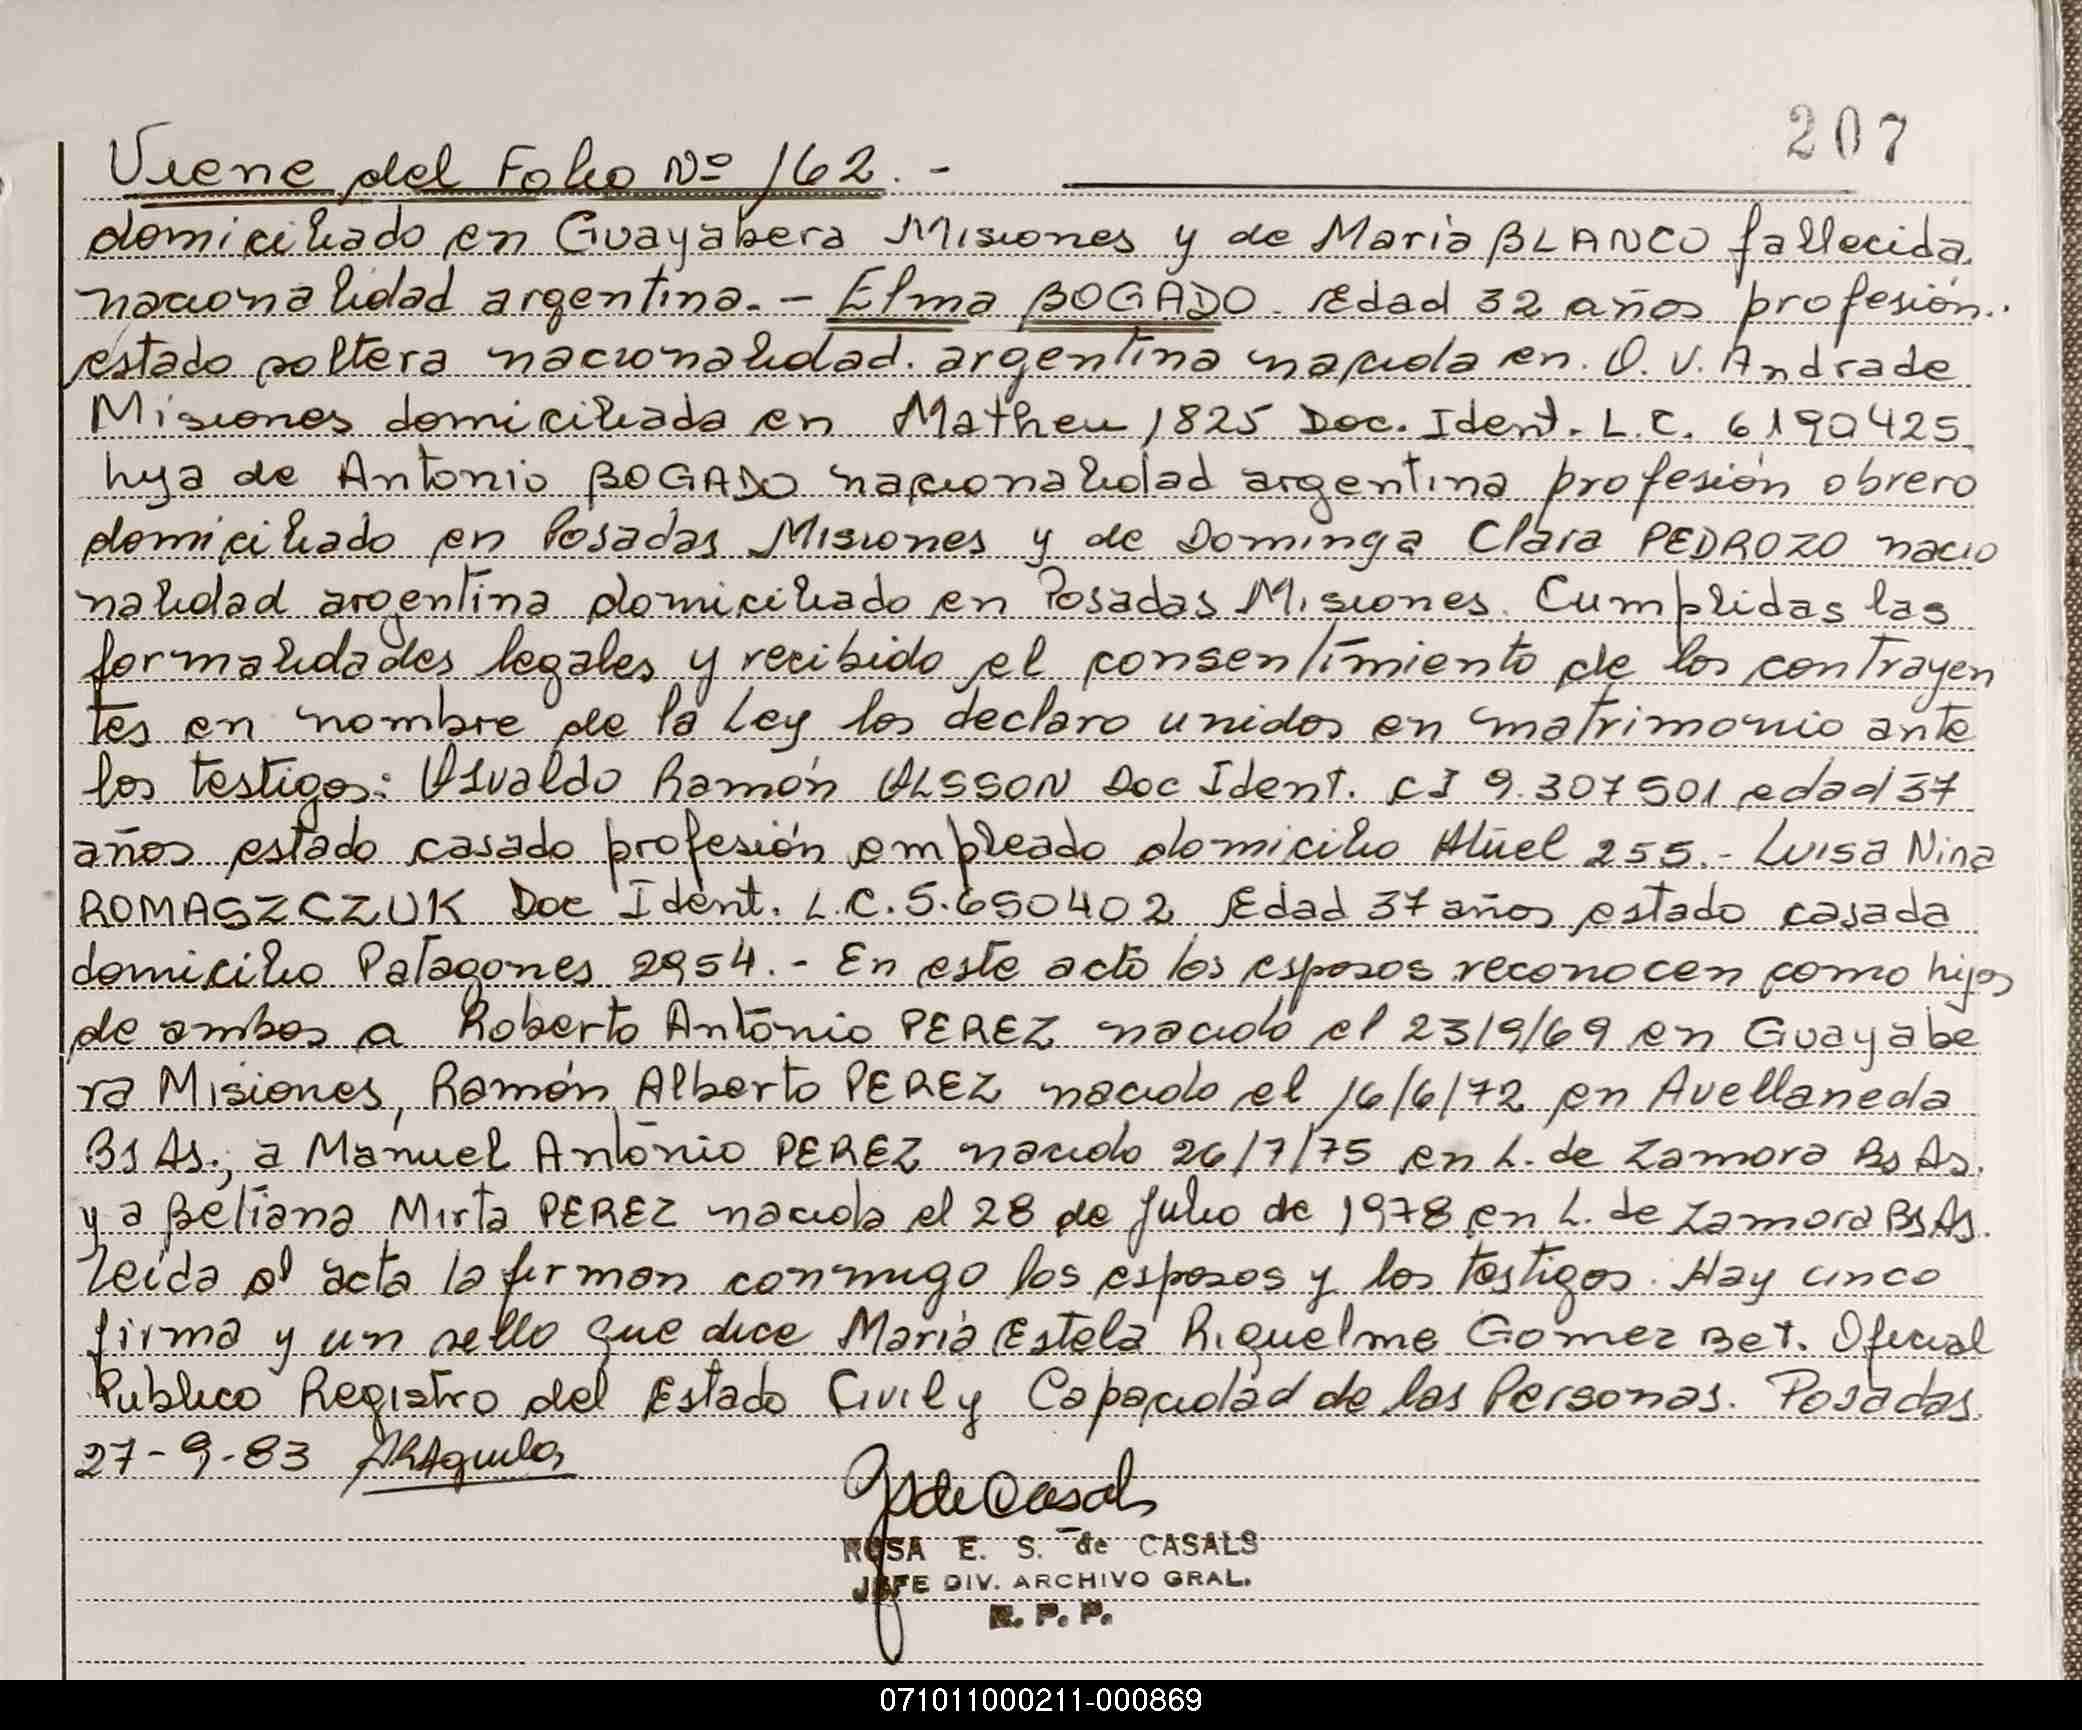 207
Viene del Folio Nº 162.-
domiciliado en Guayabera Misiones y de Maria BLANCO fallecida.
nacionalidad argentina.- Elma BOGADO. Edad 32 años profesión..
estado soltera nacionalidad. argentina nacida en. O. V. Andrade
Misiones domiciliada en Matheu 1825 Doc. Ident. L.C. 6190425.
hija de Antonio BOGADO nacionalidad argentina profesión obrero
domiciliado en Posadas Misiones y de Dominga Clara PEDROZO nacio
nalidad argentina domiciliado en Posadas Misiones. Cumplidas las
formalidades legales y recibido el consentimiento de los contrayen
tes en nombre de la Ley los declaro unidos en matrimonio ante
los testigos: Osvaldo Ramón OLSSON Doc Ident. CI 9.307501 edad 37
años estado casado profesión empleado domicilio Atuel 255.- Luisa Nina
ROMASZCZUK Doc Ident. L.C.5.650402 Edad 37 años estado casada
domicilio Patagones 2954.- En este acto los esposos reconocen como hijos
de ambos a Roberto Antonio PEREZ nacido el 23/9/69 en Guayabe
ra Misiones, Ramón Alberto PEREZ nacido el 16/6/72 en Avellaneda
Bs As., a Manuel Antonio PEREZ nacido 26/7/75 en L. de Zamora Bs As.
y a Betiana Mirta PEREZ nacida el 28 de Julio de 1978 en L. de Zamora Bs As.
Leida el acta la firman conmigo los esposos y los testigos. Hay cinco
firma y un sello que dice Maria Estela Riquelme Gomez Bet. Oficial
Publico Registro del Estado Civil y Capacidad de las Personas. Posadas.
27-9-83
ROSA E. S. de CASALS
JEFE DIV. ARCHIVO GRAL.
R. P. P.
071011000211-000869